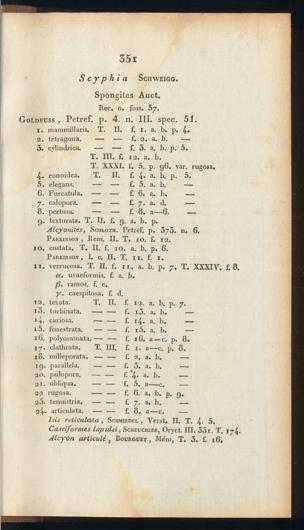 351
Scyphia Schweigg.
Spongites Auct.
Rec. o. foss. 57.
Goldfuss, Petref. p. 4. n. III. spec. 51.
1. mammillaris. T. II. f. 1. a. b. p. 4.
2. tetragona. — — f. 2. a. b. —
3. cylindrica. — — f. 3. a. b. p. 5.
T. III. f. 12. a. b.
T. XXXI. f. 5. p. 96. var. rugosa.
4. conoidea. T. II. f. 4. a. b. p. 5.
5. elegans. — — f. 5. a. b. —
6. Furcatula. — — f. 6. a. b. —
7. calopora. — — f. 7. a. d. —
8. pertusa. — — f. 8. a—6. —
9. texturata. T. II. f. 9. a. b. p.
Alcyonites, Schloth. Petref. p. 373. n. 6.
Parkinson, Rem. II. T. 10. f. 12.
10. costata. T. II. f. 10. a. b. p. 6.
Parkinson, l. c. II. T. 11. f. 1.
11. verrucosa. T. II. f. 11. a. b. p. 7. T. XXXIV. f. 8.
α. uvaeformis. f. a. b.
β. ramos. f. c.
γ. caespitosa. f. d.
12. texata. T. II. f. 12. a. b. p. 7.
13. turbinata. — — f. 13. a. b. —
14. cariosa. — — f. 14. a. b. —
15. fenestrata. — — f. 15. a. b. —
16. polyommata. — — f. 16. a—c. p. 8.
17. clathrata. T. III. f. 1. a—c. p. 8.
18. milleporata. — — f. 2. a. b. —
19. parallela. — — f. 3. a. b. —
20. psilopora. — — f. 4. a. b. —
21. obliqua. — — f. 5. a—c. —
22 rugosa. — — f. 6. a. b. p. 9.
23. tenuistria. — — f. 7. a. b. —
24. articulata. — — f. 8. a—c. —
Isis reticulata, Schmiedel, Verst. II. T. 4. 5.
Caseiformes lapidei, Scheuchzer, Oryct. III. 331. T. 174.
Alcyon articulé, Bourguet, Mém, T. 3. f. 16.